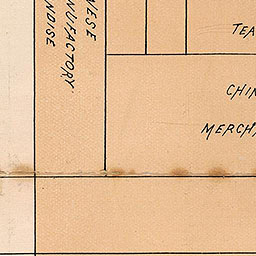 NESE
NUFACTORY
NDISE
TEA
CHIN
MERCH,